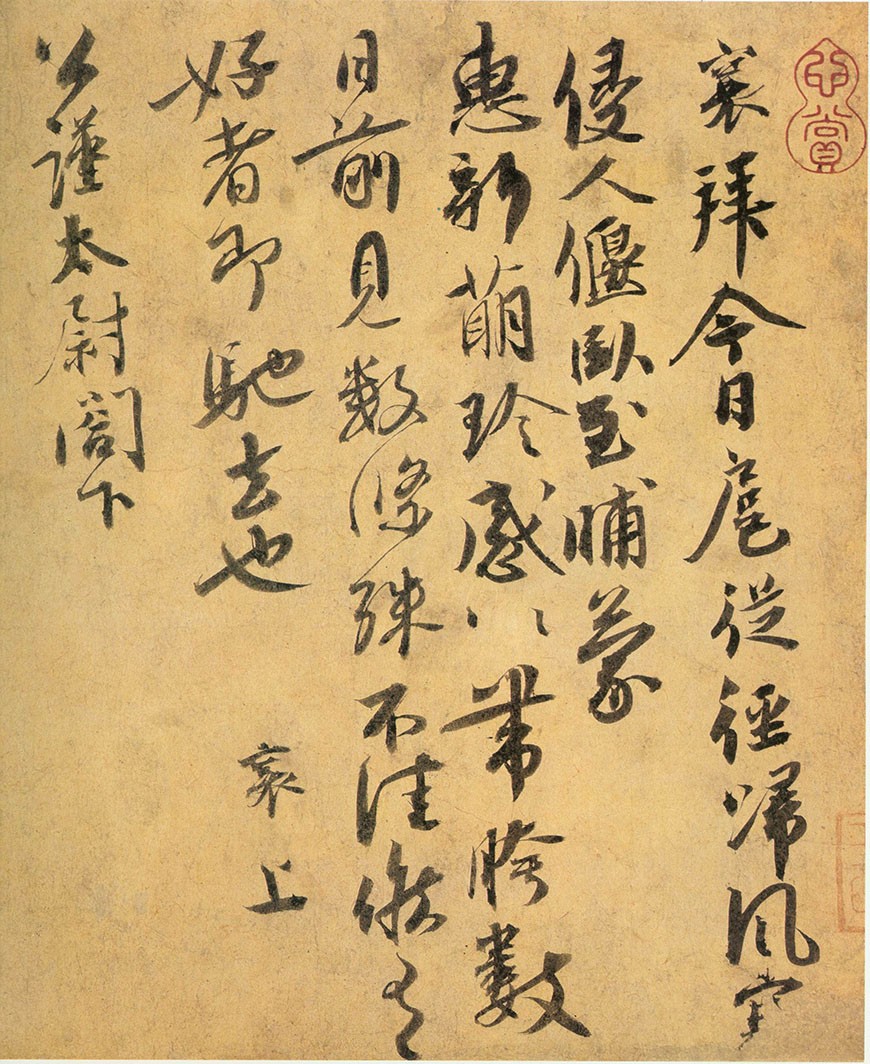 襄拜今日扈從徑歸風寒
侵人偃臥至晡蒙
惠新萌珍感〻〻帶胯數
日前見數條殊不佳候有
好者即馳去也
襄上
公謹太尉閣下